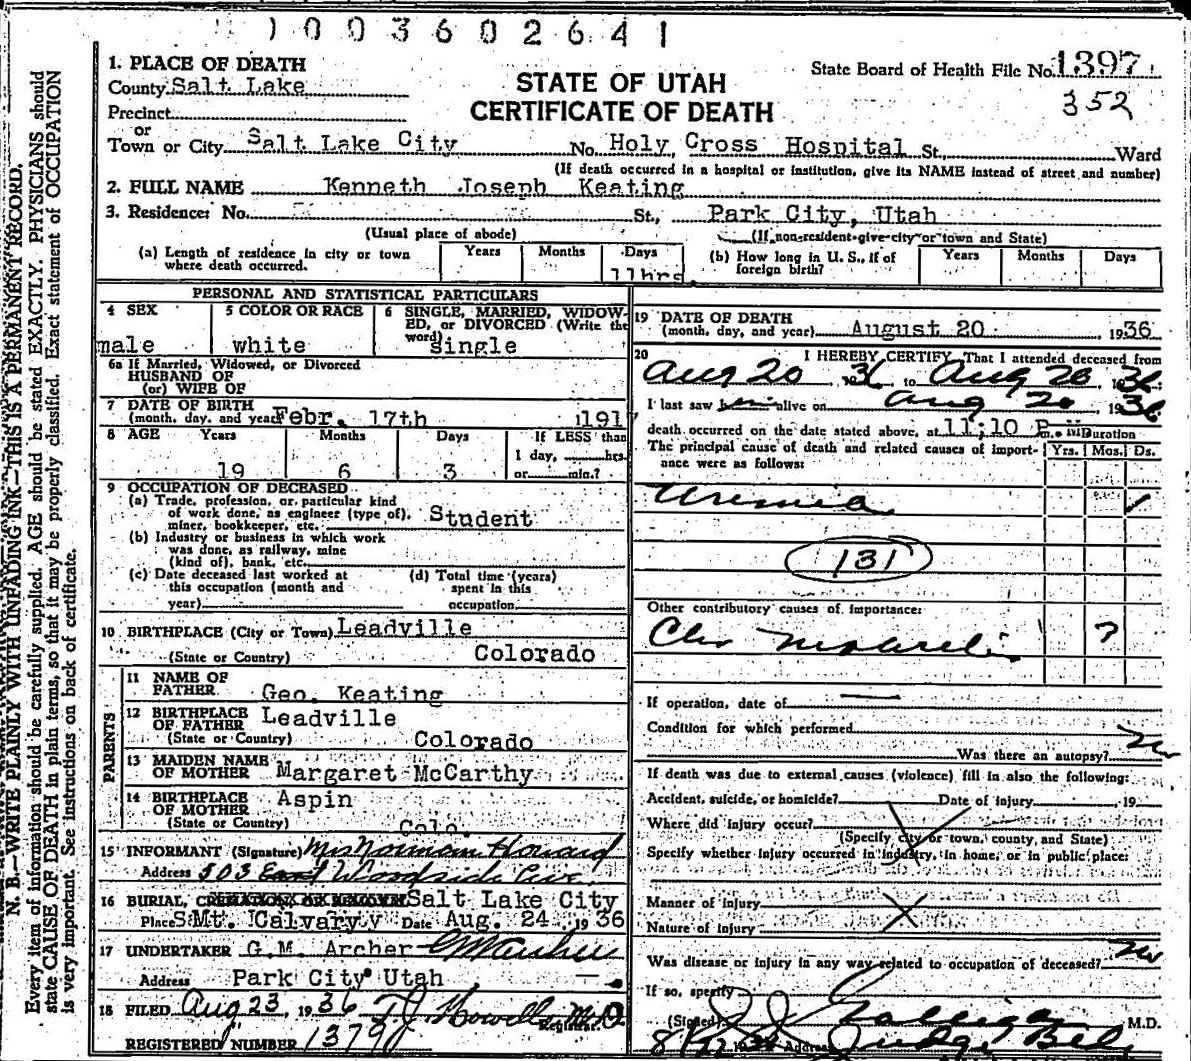 1003602641
1. PLACE OF DEATH
County Salt Lake
STATE OF UTAH
CERTIFICATE OF DEATH
State Board of Health File No. 1397
352
Precinct
or
Town or City Salt Lake City No. Holy Cross Hospital St., Ward
(If death occurred in a hospital or institution, give its NAME instead of street and number)
2. FULL NAME Kenneth Joseph Keating
3. Residence: No. St., Park City, Utah
(Usual place of abode) (If non-resident give city or town and State)
(a) Length of residence in city or town where death occurred. Years Months Days 11hrs.
(b) How long in U. S., if of foreign birth? Years Months Days
PERSONAL AND STATISTICAL PARTICULARS
4 SEX male
5 COLOR OR RACE white
6 SINGLE, MARRIED, WIDOWED, or DIVORCED (Write the word) single
6a If Married, Widowed, or Divorced
HUSBAND OF
(or) WIFE OF
7 DATE OF BIRTH
(month, day, and year) Febr. 17th 1917
8 AGE Years Months Days If LESS than
1 day, hrs.
19 6 3 or min.?
9 OCCUPATION OF DECEASED
(a) Trade, profession, or particular kind
of work done, as engineer (type of), Student
miner, bookkeeper, etc.
(b) Industry or business in which work
was done, as railway, mine
(kind of), bank, etc.
(c) Date deceased last worked at
this occupation (month and
year)
(d) Total time (years)
spent in this
occupation
10 BIRTHPLACE (City or Town) Leadville
(State or Country) Colorado
PARENTS
11 NAME OF
FATHER Geo. Keating
12 BIRTHPLACE Leadville
OF FATHER
(State or Country) Colorado
13 MAIDEN NAME
OF MOTHER Margaret McCarthy
14 BIRTHPLACE Aspin
OF MOTHER
(State or Country) Colo.
15 INFORMANT (Signature) Mrs Norman Howard
Address 503 East Woodside Ave.
16 BURIAL, CREMATION OR REMOVAL Salt Lake City
Place S Mt. Calvary Date Aug. 24 1936
17 UNDERTAKER G.M. Archer GMArcher
Address Park City Utah
18 FILED Aug 23, 1936 Howells M.D.
Registrar.
REGISTERED NUMBER 1379
19 DATE OF DEATH
(month, day, and year) August 20 1936
20 I HEREBY CERTIFY, That I attended deceased from
Aug 20, 1936 to Aug 20, 1936
I last saw him alive on Aug 20, 1936
death occurred on the date stated above, at 11;10 P m.
The principal cause of death and related causes of importance were as follows:
Duration
Yrs. Mos. Ds.
Uremia 1
131
Other contributory causes of importance:
Chr ?
If operation, date of —
Condition for which performed
Was there an autopsy? No
If death was due to external causes (violence) fill in also the following:
Accident, suicide, or homicide? Date of injury , 19
Where did injury occur?
(Specify city or town, county, and State)
Specify whether injury occurred in industry, in home, or in public place:
Manner of injury
Nature of injury
Was disease or injury in any way related to occupation of deceased? No
If so, specify
(Signed) M.D.
Address Judge Bld
N. B.—WRITE PLAINLY WITH UNFADING INK—THIS IS A PERMANENT RECORD.
Every item of information should be carefully supplied. AGE should be stated EXACTLY. PHYSICIANS should
state CAUSE OF DEATH in plain terms, so that it may be properly classified. Exact statement of OCCUPATION
is very important. See instructions on back of certificate.